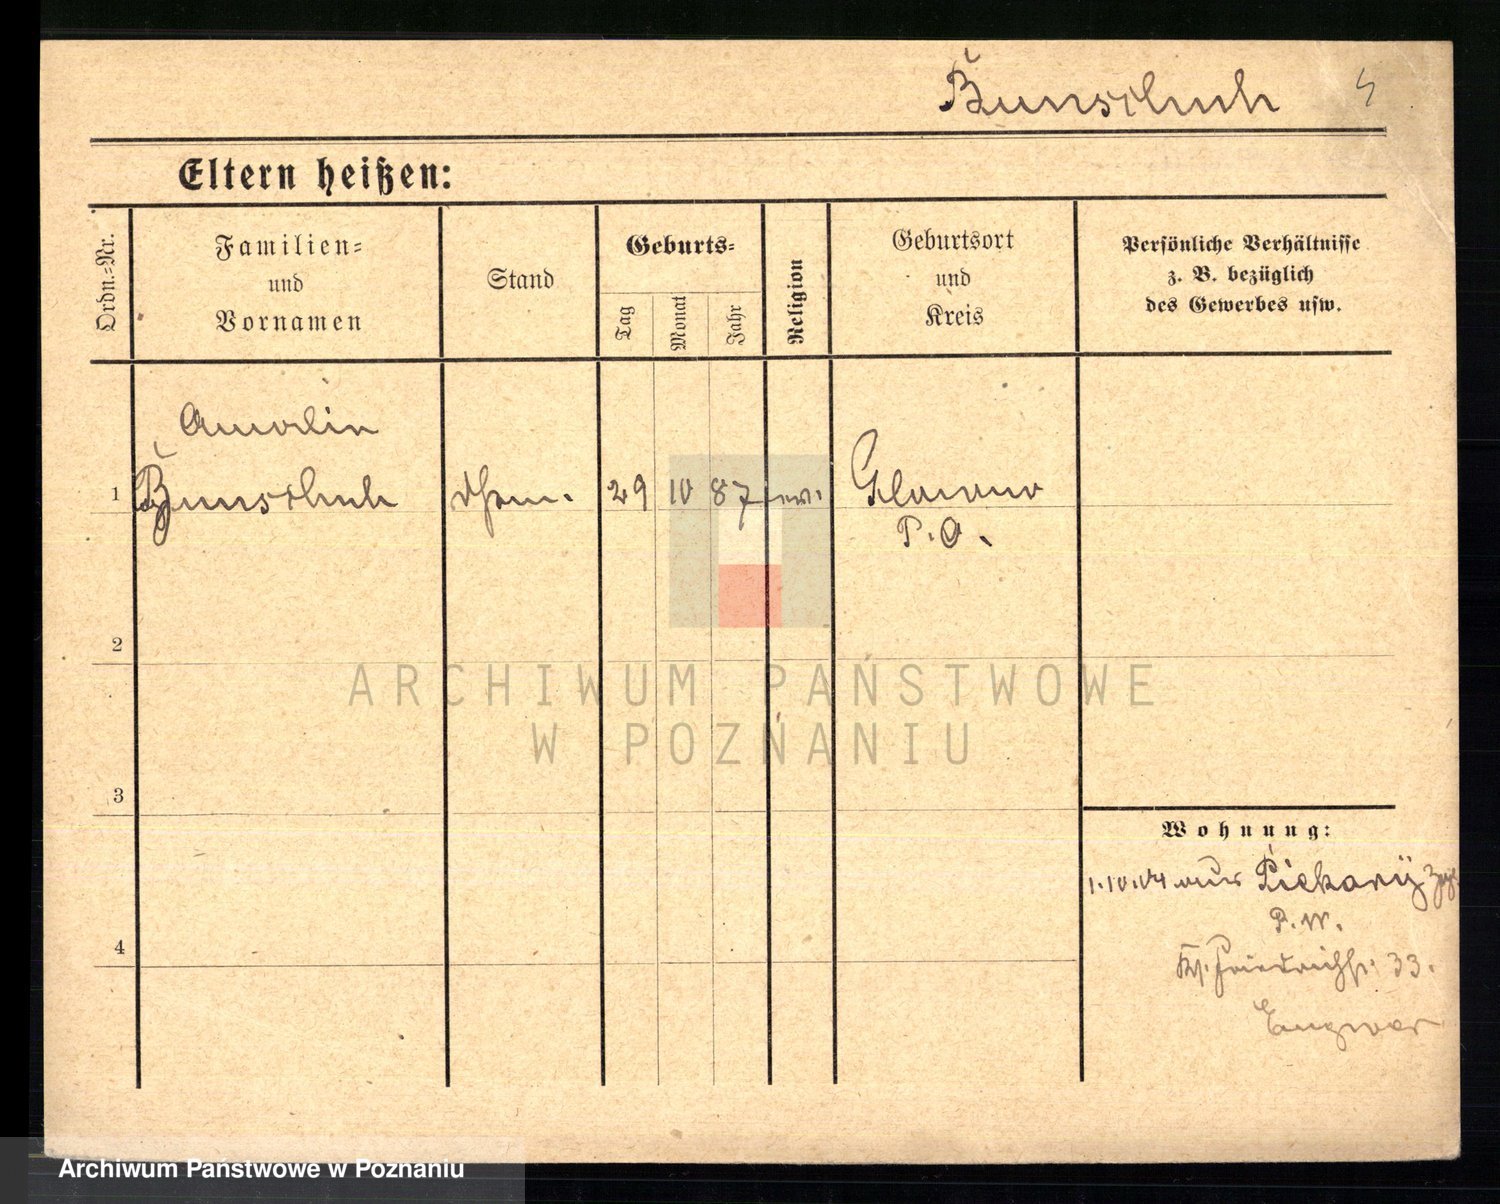 Bunschuh
Eltern heißen:
Ordn.=Nr.
Familien=
und
Vornamen
Stand
Geburts=
Tag
Monat
Jahr
Religion
Geburtsort
und
Kreis
Persönliche Verhältnisse
z. B. bezüglich
des Gewerbes usw.
1
Bunschuh
29
10
87
ev.
Glowno
P. O.
2
3
4
Wohnung:
1.10.04 aus
P. W.
33.
ARCHIWUM PAŃSTWOWE
W POZNANIU
Archiwum Państwowe w Poznaniu